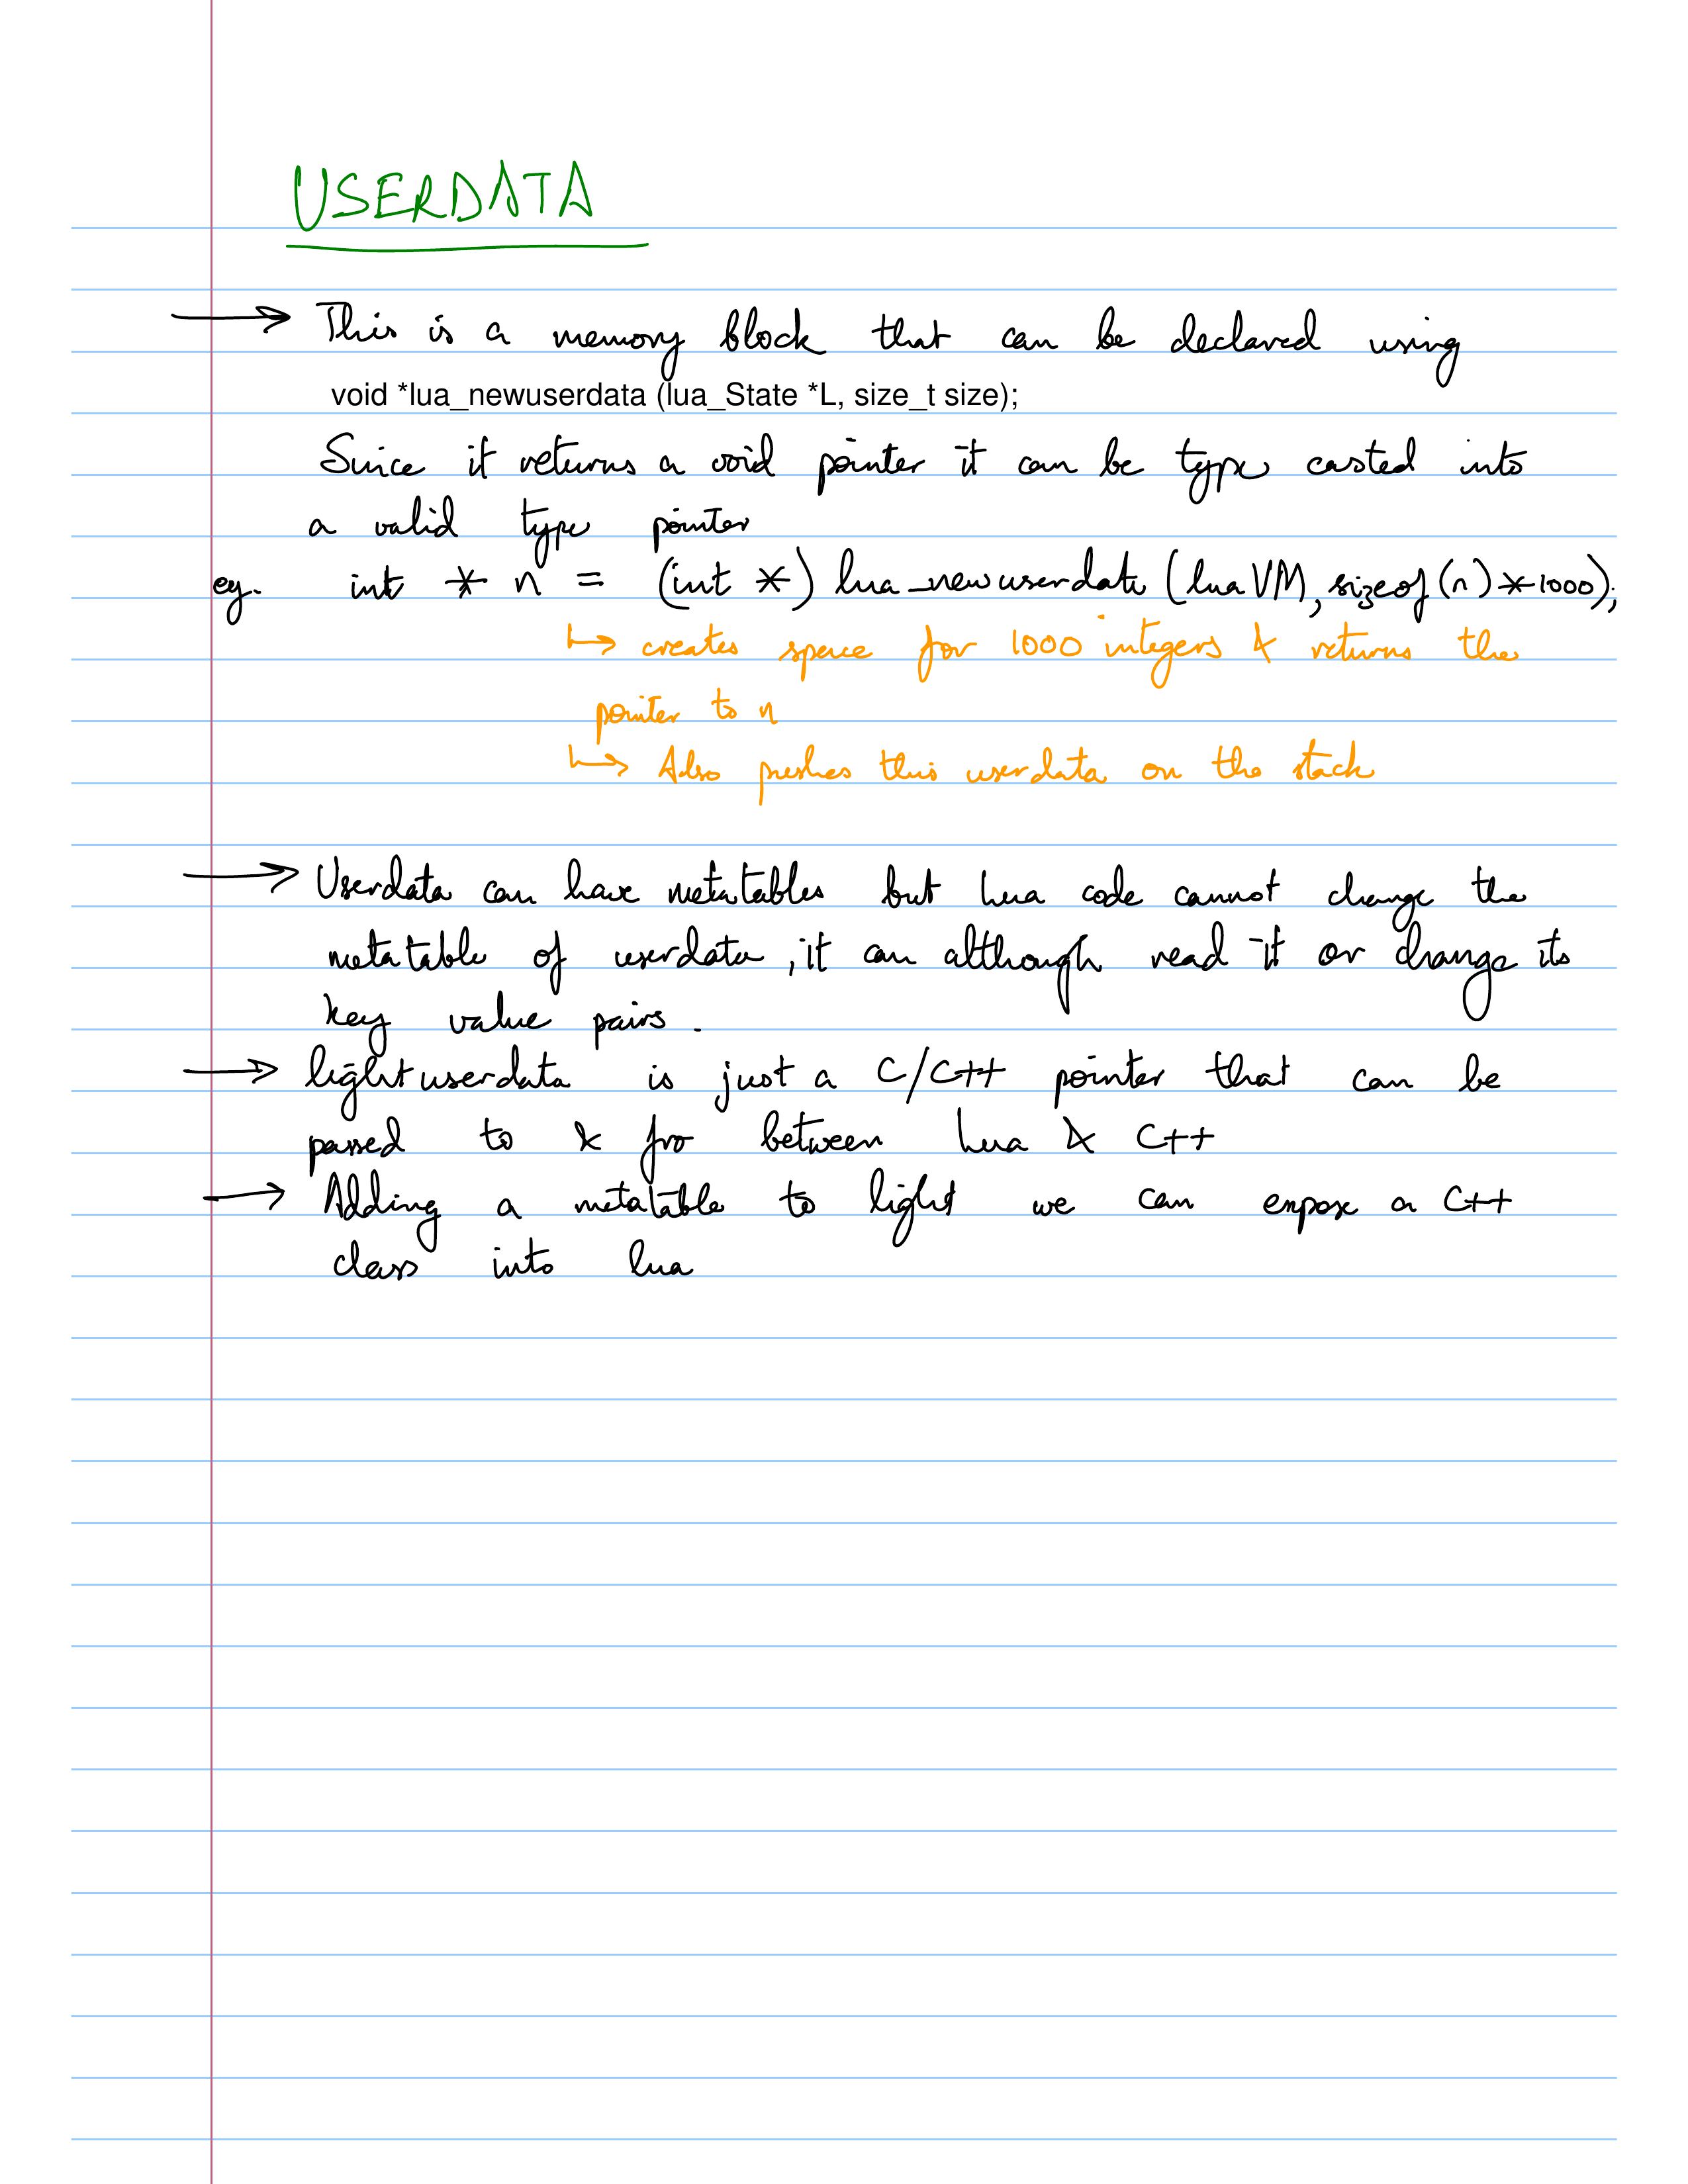 USERDATA
→ This is a memory block that can be declared using
void *lua_newuserdata (lua_State *L, size_t size);
Since it returns a void pointer it can be type casted into
a valid type pointer
eg. int * n = (int *) lua_newuserdata (luaVM, sizeof(n)*1000);
↳ creates space for 1000 integers & returns the
pointer to n
↳ Also pushes this userdata on the stack
→ Userdata can have metatables but Lua code cannot change the
metatable of userdata, it can although read it or change its
key value pairs.
→ lightuserdata is just a C/C++ pointer that can be
passed to & fro between Lua & C++
→ Adding a metatable to light we can expose a C++
class into lua